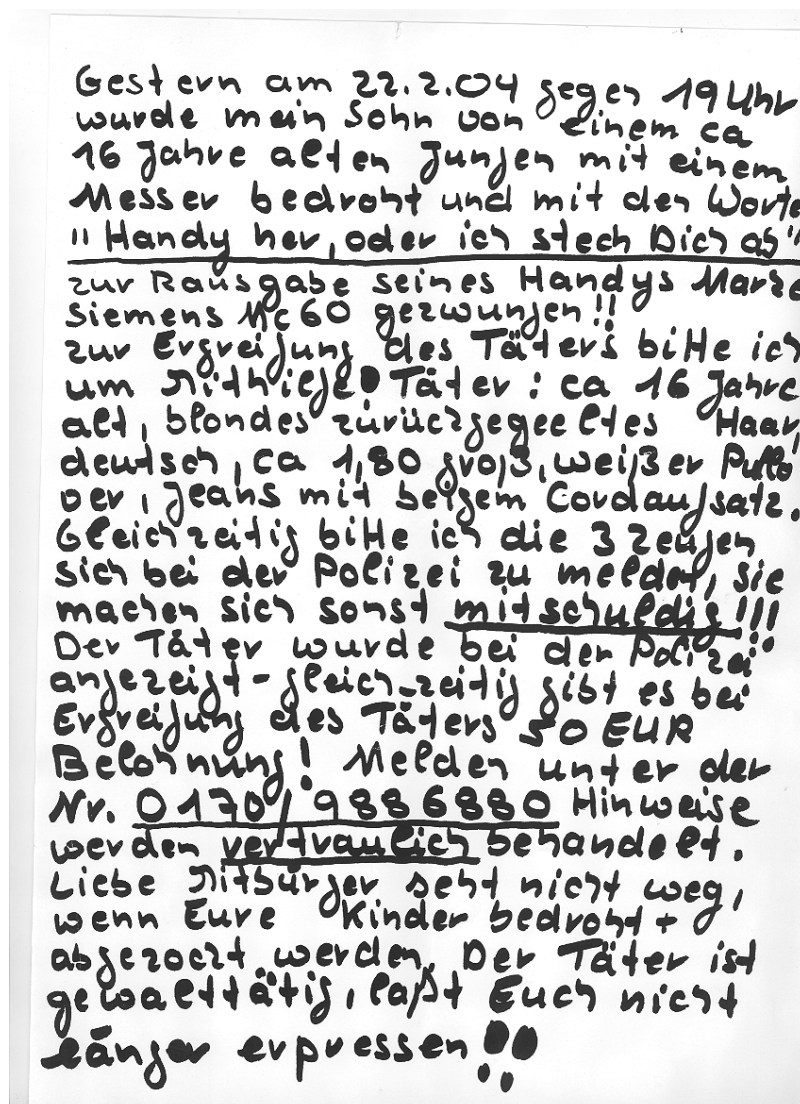 Gestern am 22.2.04 gegen 19 Uhr
wurde mein Sohn von einem ca
16 Jahre alten Jungen mit einem
Messer bedroht und mit den Worte
"Handy her, oder ich stech Dich ab"
zur Rausgabe seines Handys Marke
Siemens Mc60 gezwungen!!
zur Ergreifung des Täters bitte ich
um Mithilfe! Täter: ca 16 Jahre
alt, blondes zurückgegeeltes Haar,
deutsch, ca 1,80 groß, weißer Pullo
ver, Jeans mit beigem Cordaufsatz.
Gleichzeitig bitte ich die 3 Zeugen
sich bei der Polizei zu melden, sie
machen sich sonst mitschuldig!!!
Der Täter wurde bei der Polizei
angezeigt - gleich-zeitig gibt es bei
Ergreifung des Täters 50 EUR
Belohnung! Melden unter der
Nr. 0170/9886880 Hinweise
werden vertraulich behandelt.
Liebe Mitbürger seht nicht weg,
wenn Eure Kinder bedroht +
abgezockt werden. Der Täter ist
gewalttätig, laßt Euch nicht
länger erpressen!!